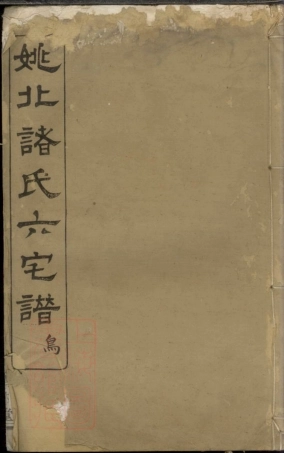 姚北諸氏六宅譜
鳥